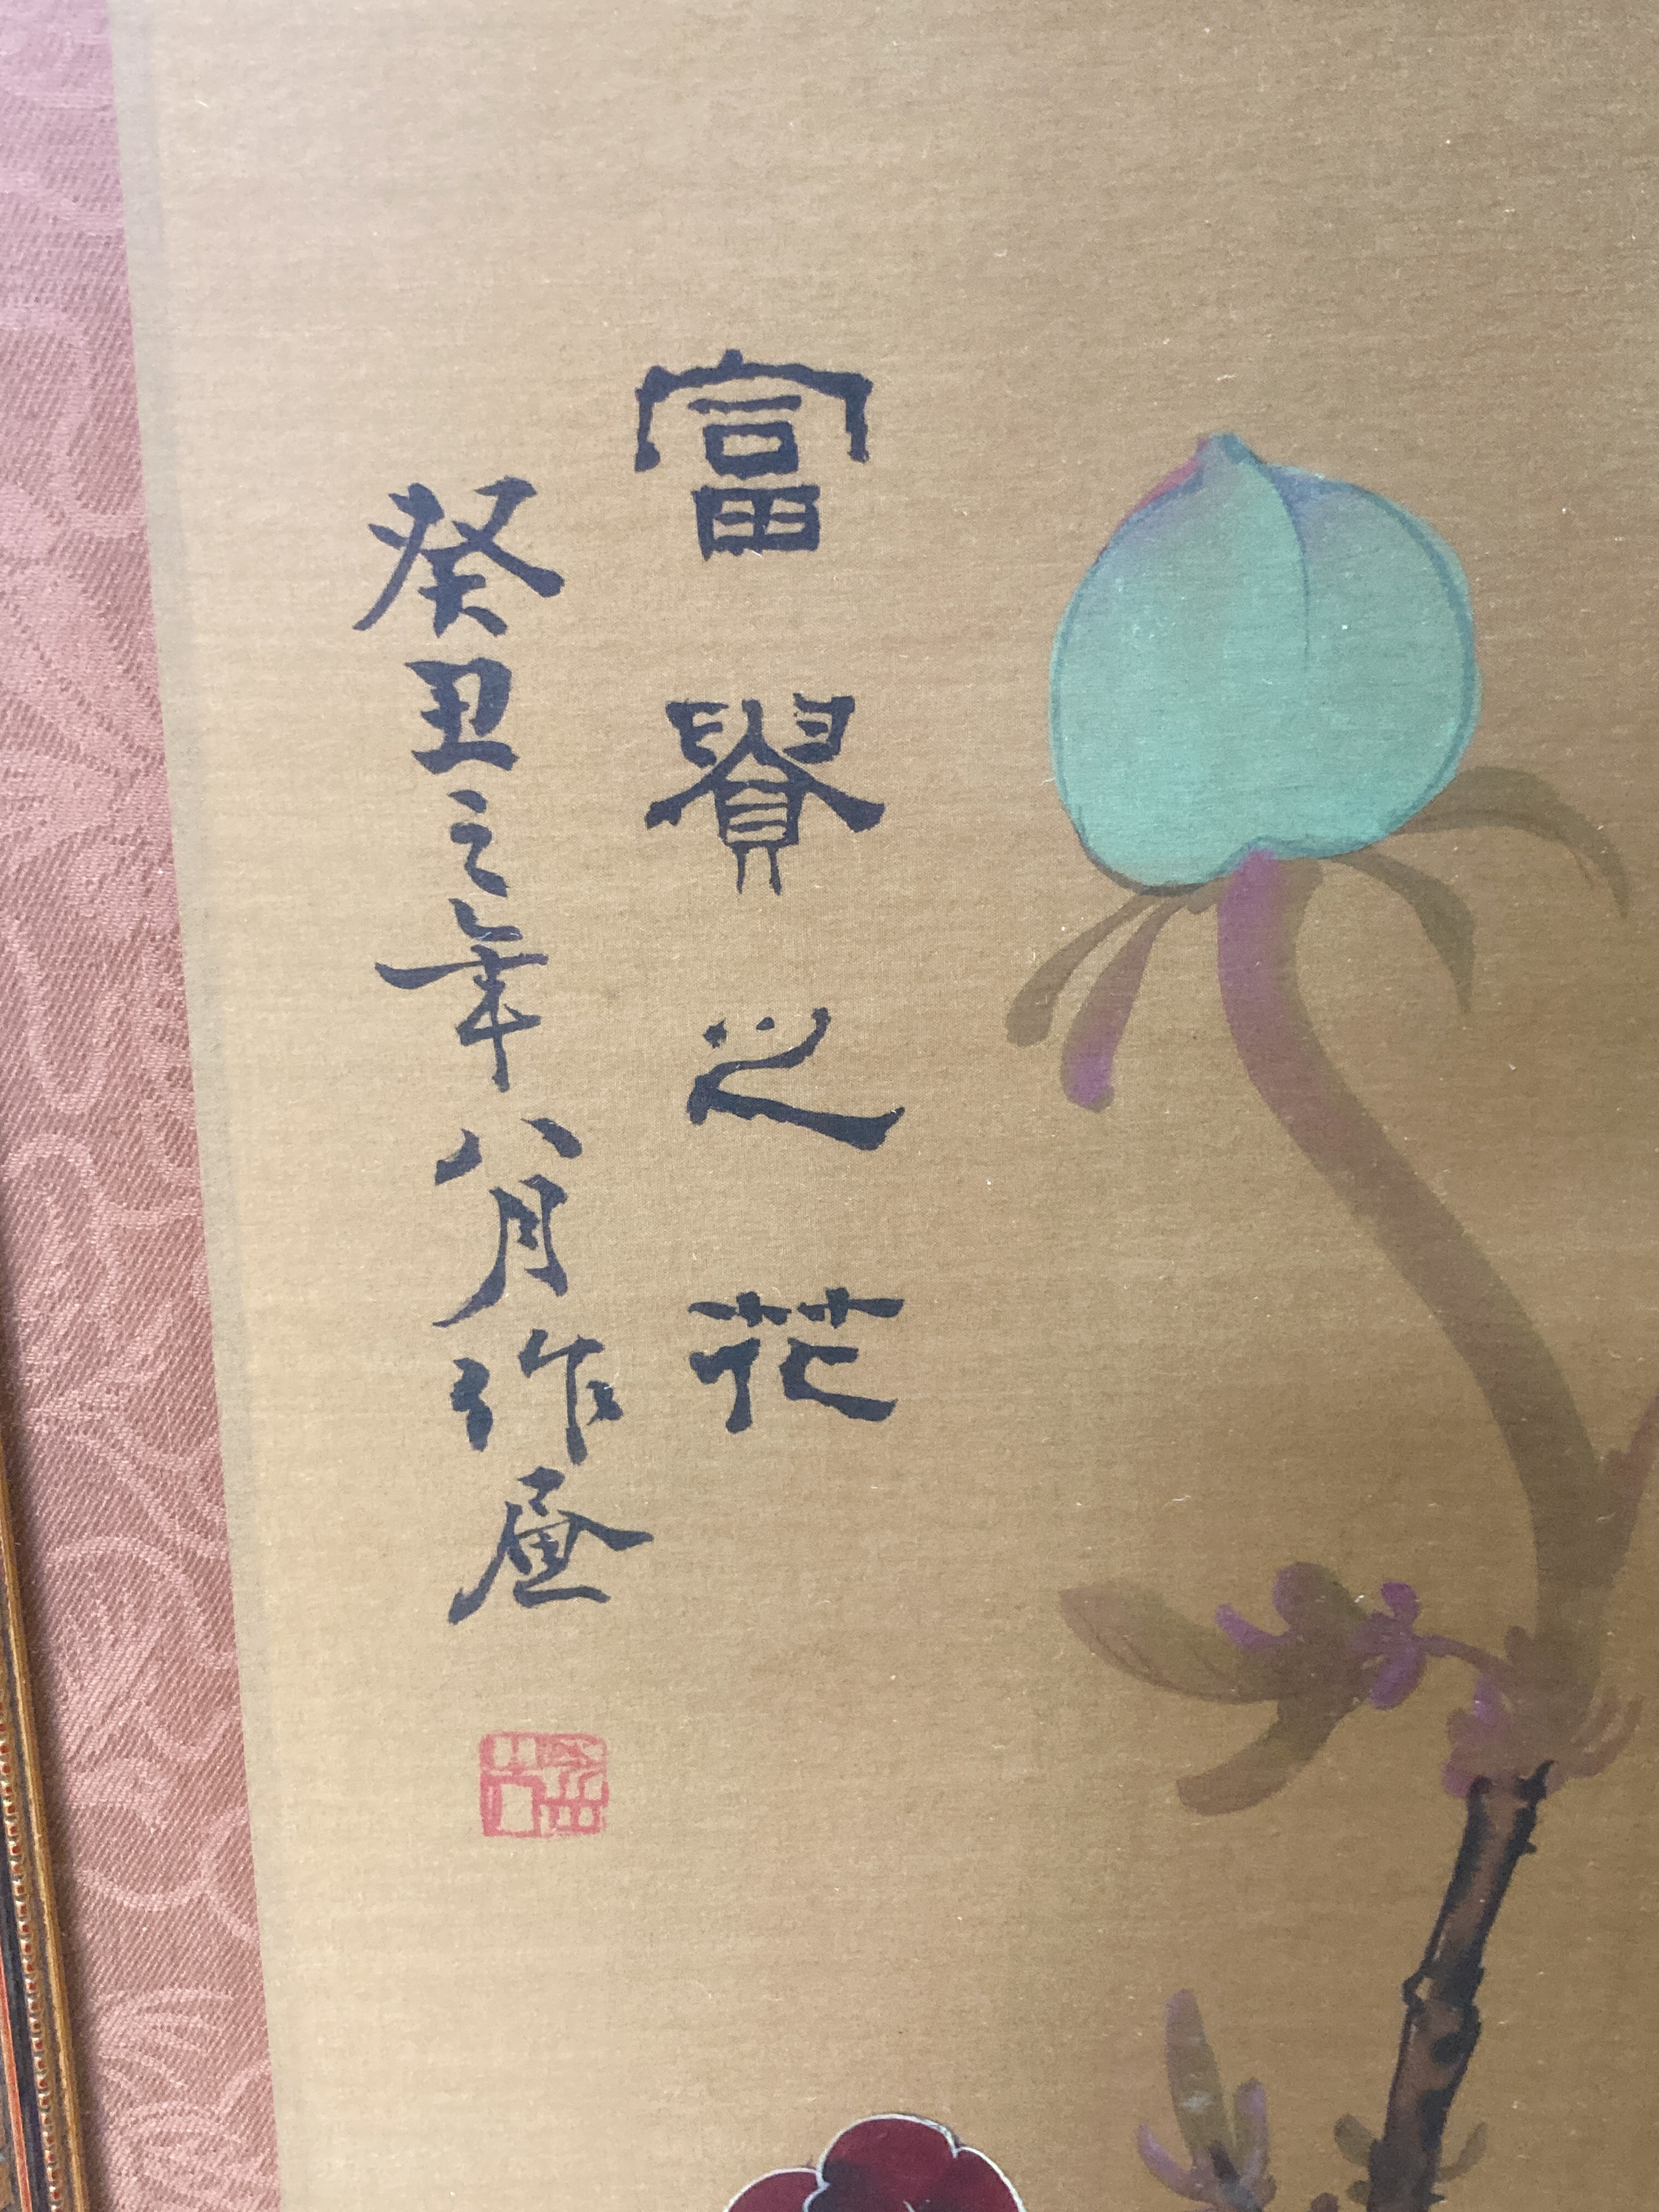 富貴之花
癸丑之年八月作畫